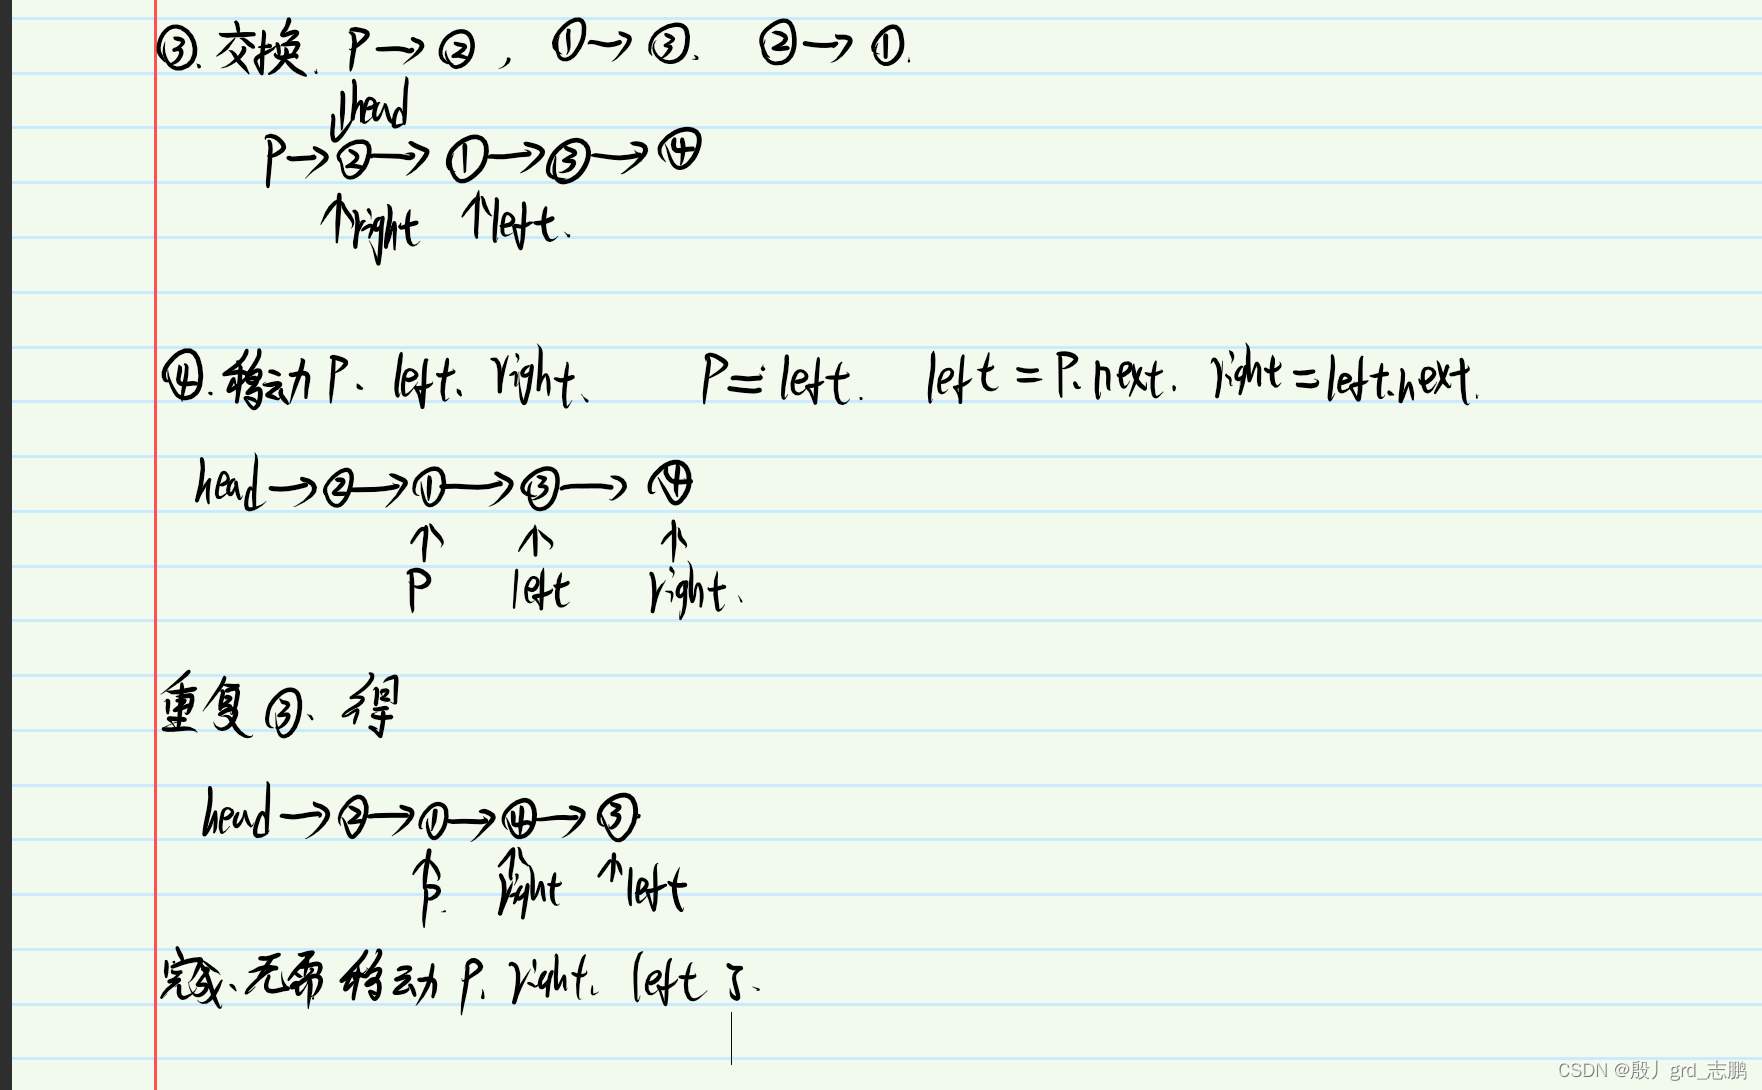 ③. 交换. P→②, ①→③. ②→①.
↓head
P→②→①→③→④
↑right ↑left.
④. 移动 P、left、right、 P = left. left = P.next. right = left.next.
head→②→①→③→④
↑ ↑ ↑
P left right、
重复③、得
head→②→①→④→③
↑ ↑ ↑left
P. right
完成、无需移动 P、right、left 了、
CSDN @殷丿grd_志鹏